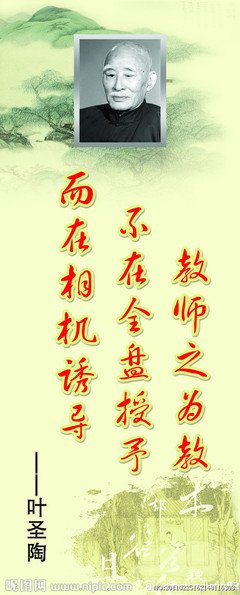 教师之为教
不在全盘授予
而在相机诱导
——叶圣陶
昵图网 www.nipic.com